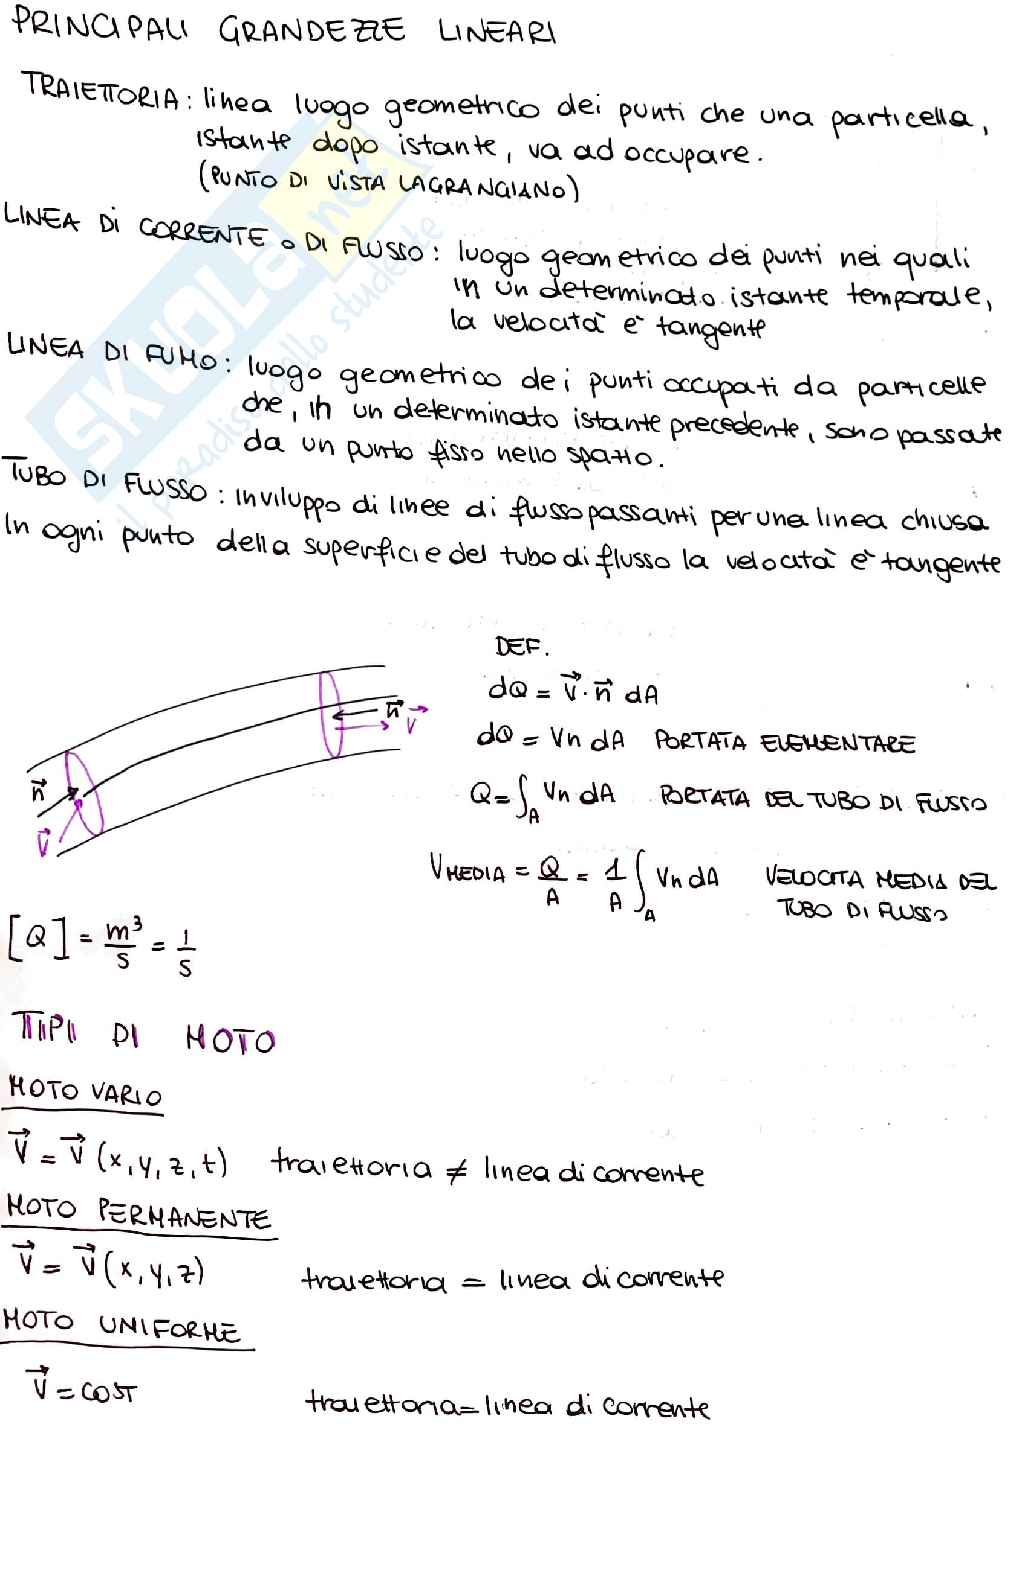 PRINCIPALI GRANDEZZE LINEARI
TRAIETTORIA: linea luogo geometrico dei punti che una particella,
istante dopo istante, va ad occupare.
(PUNTO DI VISTA LAGRANGIANO)
LINEA DI CORRENTE O DI FLUSSO: luogo geometrico dei punti nei quali
in un determinato istante temporale,
la velocità è tangente
LINEA DI FUMO: luogo geometrico dei punti occupati da particelle
che, in un determinato istante precedente, sono passate
da un punto fisso nello spazio.
TUBO DI FLUSSO: inviluppo di linee di flusso passanti per una linea chiusa
In ogni punto della superficie del tubo di flusso la velocità è tangente
SKUOLA.net
il paradiso dello studente
DEF.
dQ = v⃗·n⃗ dA
dQ = Vn dA PORTATA ELEMENTARE
Q = ∫_A Vn dA PORTATA DEL TUBO DI FLUSSO
V_MEDIA = Q/A = 1/A ∫_A Vn dA VELOCITA MEDIA DEL
TUBO DI FLUSSO
n⃗
v⃗
n⃗
v⃗
[Q] = m³/s = l/s
TIPI DI MOTO
MOTO VARIO
v⃗ = v⃗ (x, y, z, t) traiettoria ≠ linea di corrente
MOTO PERMANENTE
v⃗ = v⃗ (x, y, z) traiettoria = linea di corrente
MOTO UNIFORME
v⃗ = COST traiettoria = linea di corrente